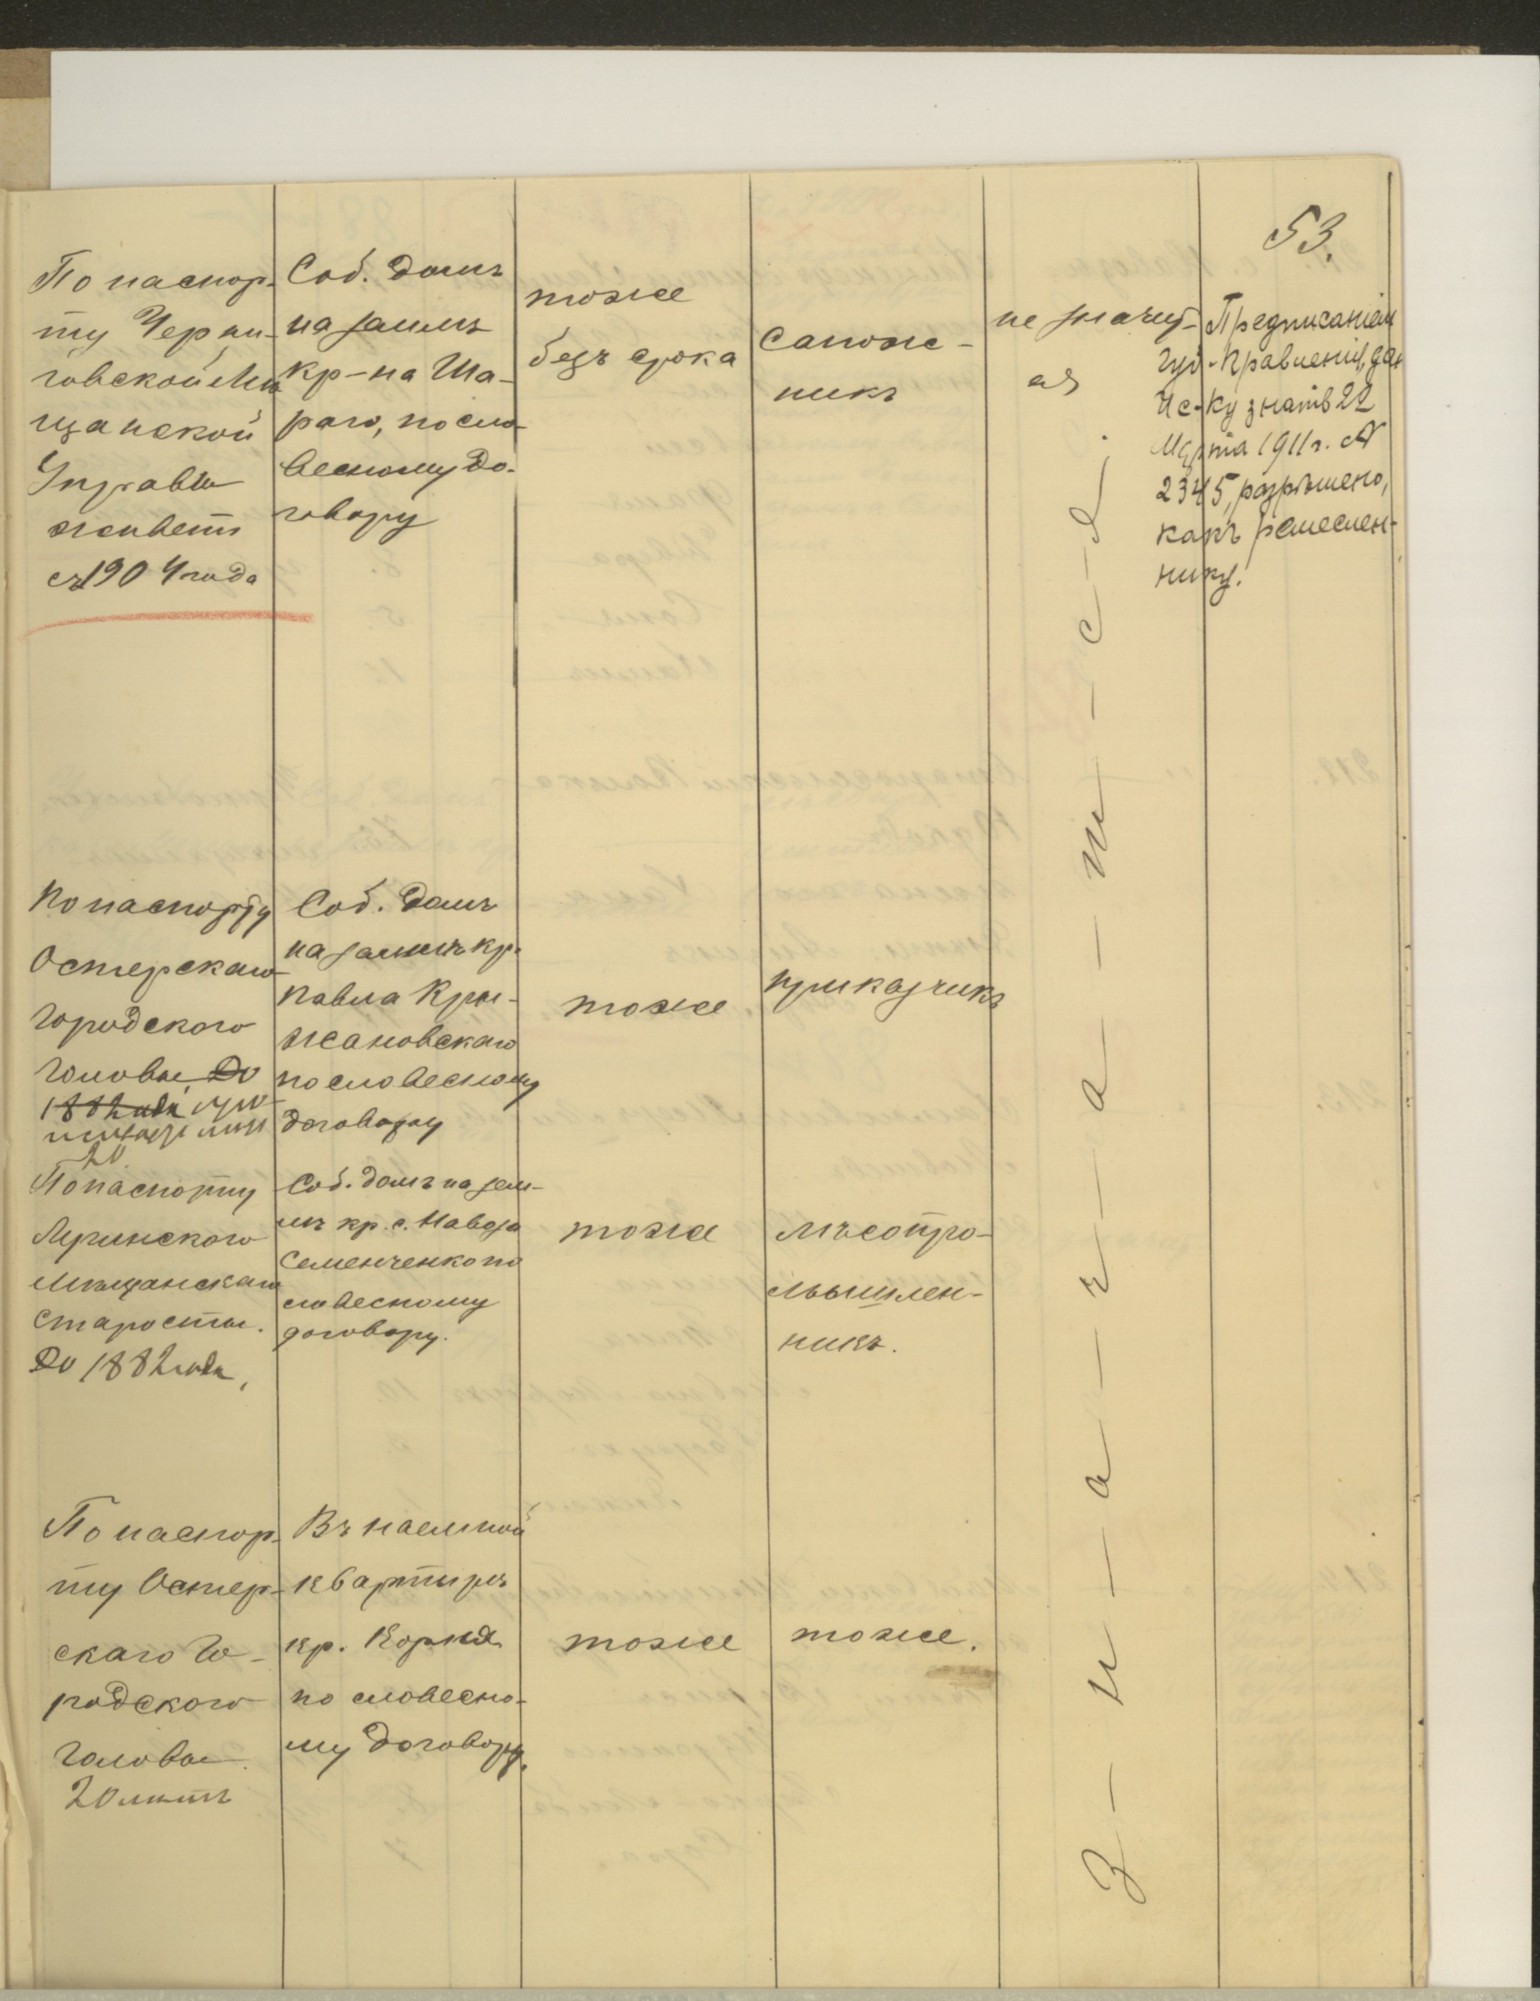 53.
По паспор-
ту Черни-
говской Мѣ
щанской
Управы
живетъ
съ 1904 года
Соб. домъ
на землѣ
кр-на Ша-
раго, по сло-
весному до-
говору
тоже
безъ срока
Сапож-
никъ
не значит-
ся
Предписаніем
Губ. Правленія, да
1911 г. №
2345, разрѣшено,
какъ ремеслен-
нику.
По паспорту
Остерскаго
Городского
Головы До
1882 года
20
Соб. домъ
на землѣ кр.
Павла Кры-
жановскаго
по словесному
договору
тоже
приказчикъ
По паспорту
Мѣщанскаго
Старосты.
До 1882 года,
Соб. домъ на зем-
лѣ кр. с.
Семенченко по
словесному
договору.
тоже
Мясопро-
мышлен-
никъ.
По паспор-
ту Остер-
скаго Го-
родского
Головы.
20 лѣтъ
Въ наемной
квартирѣ
кр. Корнѣя
по словесно-
му договору.
тоже
тоже.
З-н-а-ч-а-т-с-я.